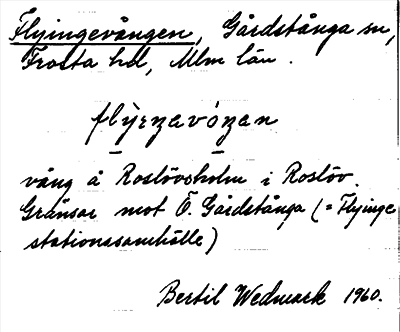 Flyingevången, Gårdstånga sn,
Frosta hd, Mlm län.
flyɪŋavóŋan
vång å Roslövsholm i Roslöv.
Gränsar mot Ö. Gårdstånga (= Flyinge
stationssamhälle)
Bertil Wedmark 1960.